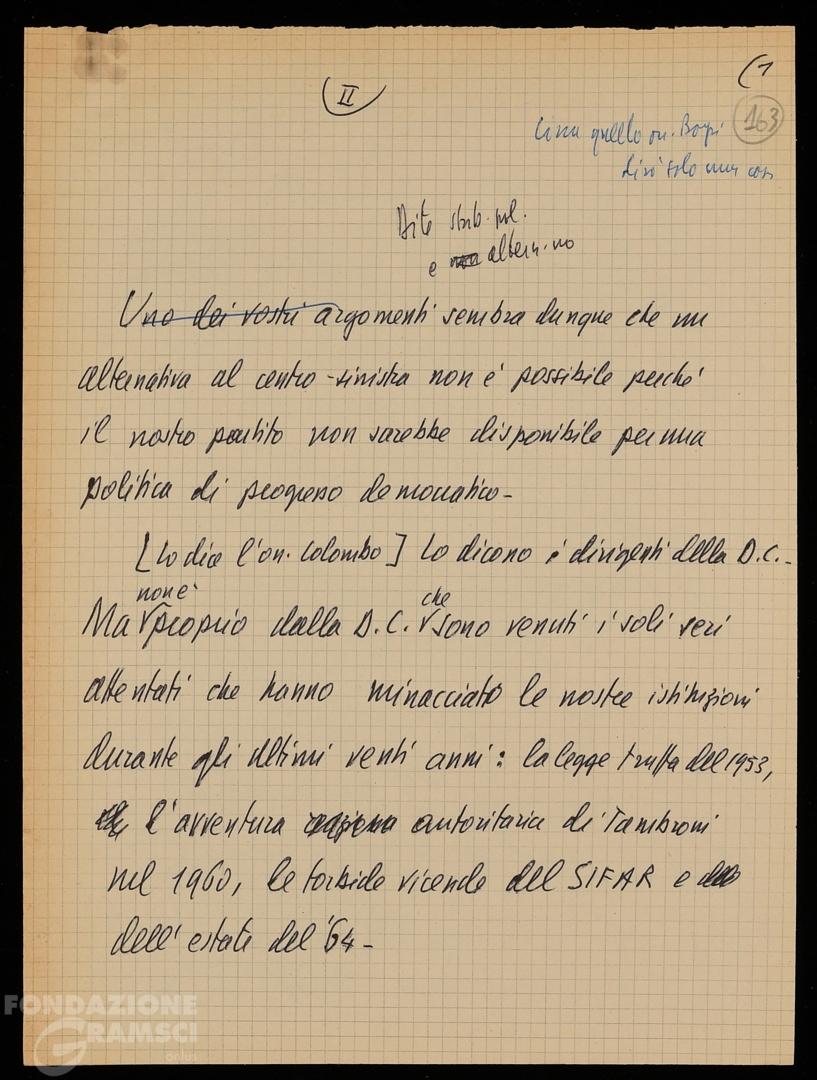 (1
II
163
Circa quello on. Borg
dirò solo una cosa
Dite stab. pol.
e non altern.
Uno dei vostri argomenti sembra dunque che un
alternativa al centro-sinistra non è possibile perché
il nostro partito non sarebbe disponibile per una
politica di progresso democratico -
[Lo dice l'on. Colombo] Lo dicono i dirigenti della D.C. -
non è che
Ma proprio dalla D.C. sono venuti i soli seri
attentati che hanno minacciato le nostre istituzioni
durante gli ultimi venti anni: la legge truffa del 1953,
l'avventura autoritaria di Tambroni
nel 1960, le torbide vicende del SIFAR e
dell'estate del '64 -
FONDAZIONE
GRAMSCI
onlus